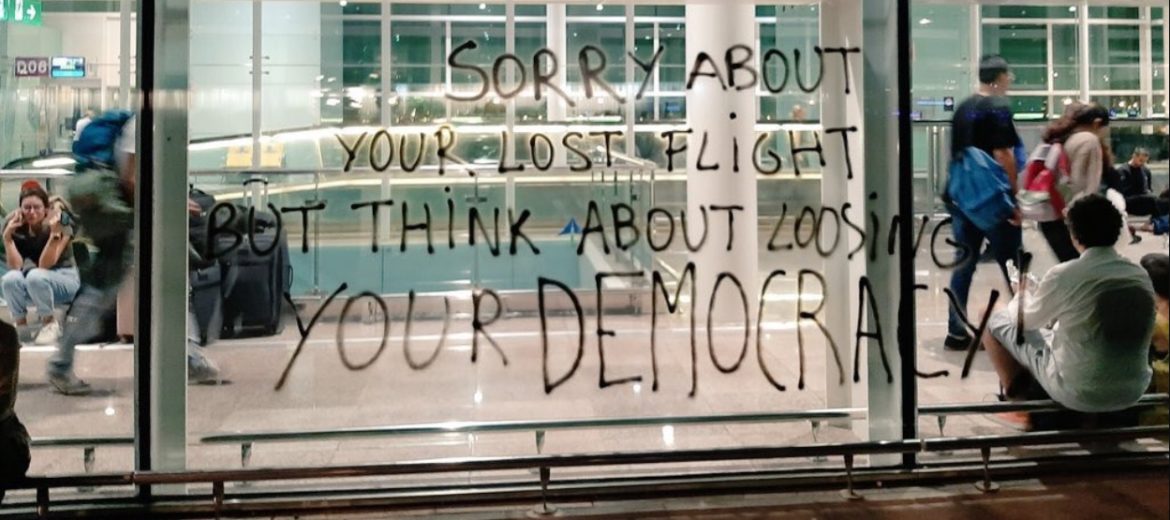 D08
SORRY ABOUT
YOUR LOST FLiGHT
BUT THiNK ABOUT LOOSiNG
YOUR DEMOCRACY